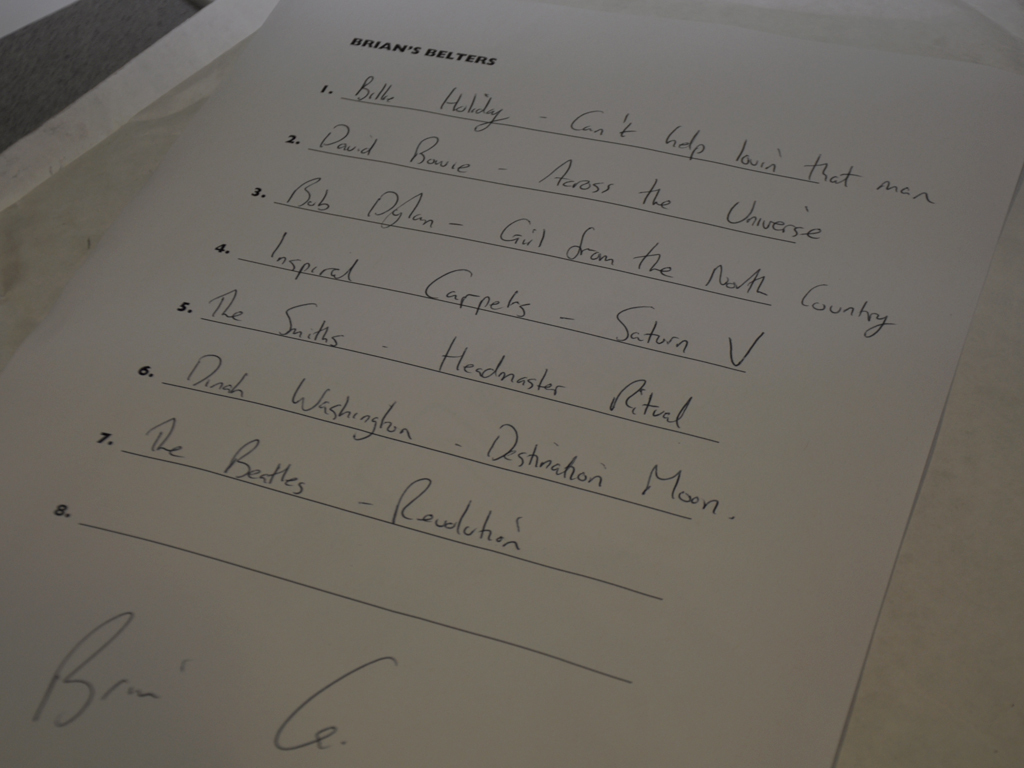 BRIAN'S BELTERS
1. Billie Holiday - Can't help lovin' that man
2. David Bowie - Across the Universe
3. Bob Dylan - Girl from the North Country
4. Inspiral Carpets - Saturn V
5. The Smiths - Headmaster Ritual
6. Dinah Washington - Destination Moon.
7. The Beatles - Revolution
8.
Brian